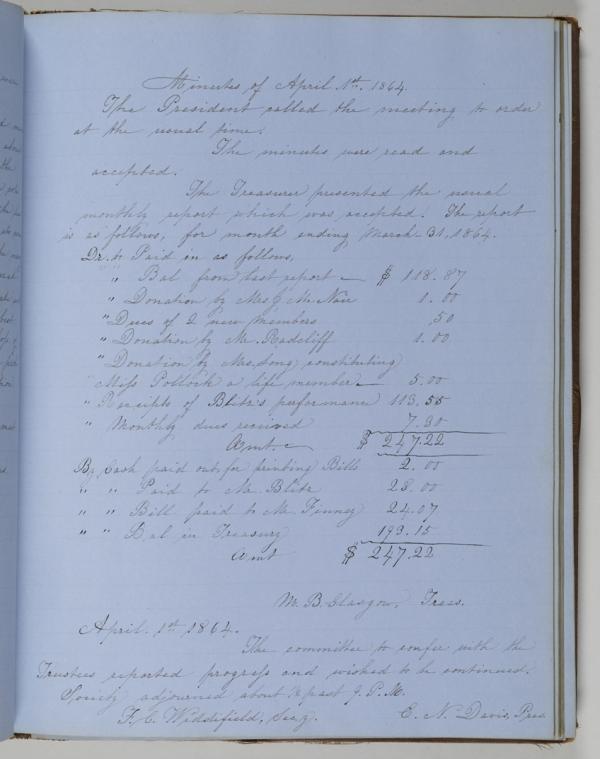 Minutes of April 1st. 1864.
The President called the meeting to order
at the usual time.
The minutes were read and
accepted.
The Treasurer presented the usual
monthly report which was accepted. The report
is as follows, for month ending March 31, 1864.
Dr. to Paid in as follows,
" Bal from last report $ 118.87
" Donation by Mrs J. M. Nair 1.00
" Dues of 2 new members .50
" Donation by Mr. Radcliff 1.00
" Donation by Mrs. Long constituting
Miss Pollock a life member 5.00
" Receipts of Blitz's performance 113.55
" Monthly dues received 7.30
Amt. $ 247.22
By Cash paid out for printing Bills 2.00
" " Paid to Mr. Blitz 28.00
" " Bill paid to Mr. Finney 24.07
" " Bal in Treasury 193.15
Amt $ 247.22
M. B. Glasgow, Treas.
April. 1st 1864.
The committee to confer with the
Trustees reported progress and wished to be continued.
Society adjourned about ½ past P.M.
F. C. Secy. E. N. Davis, Pres